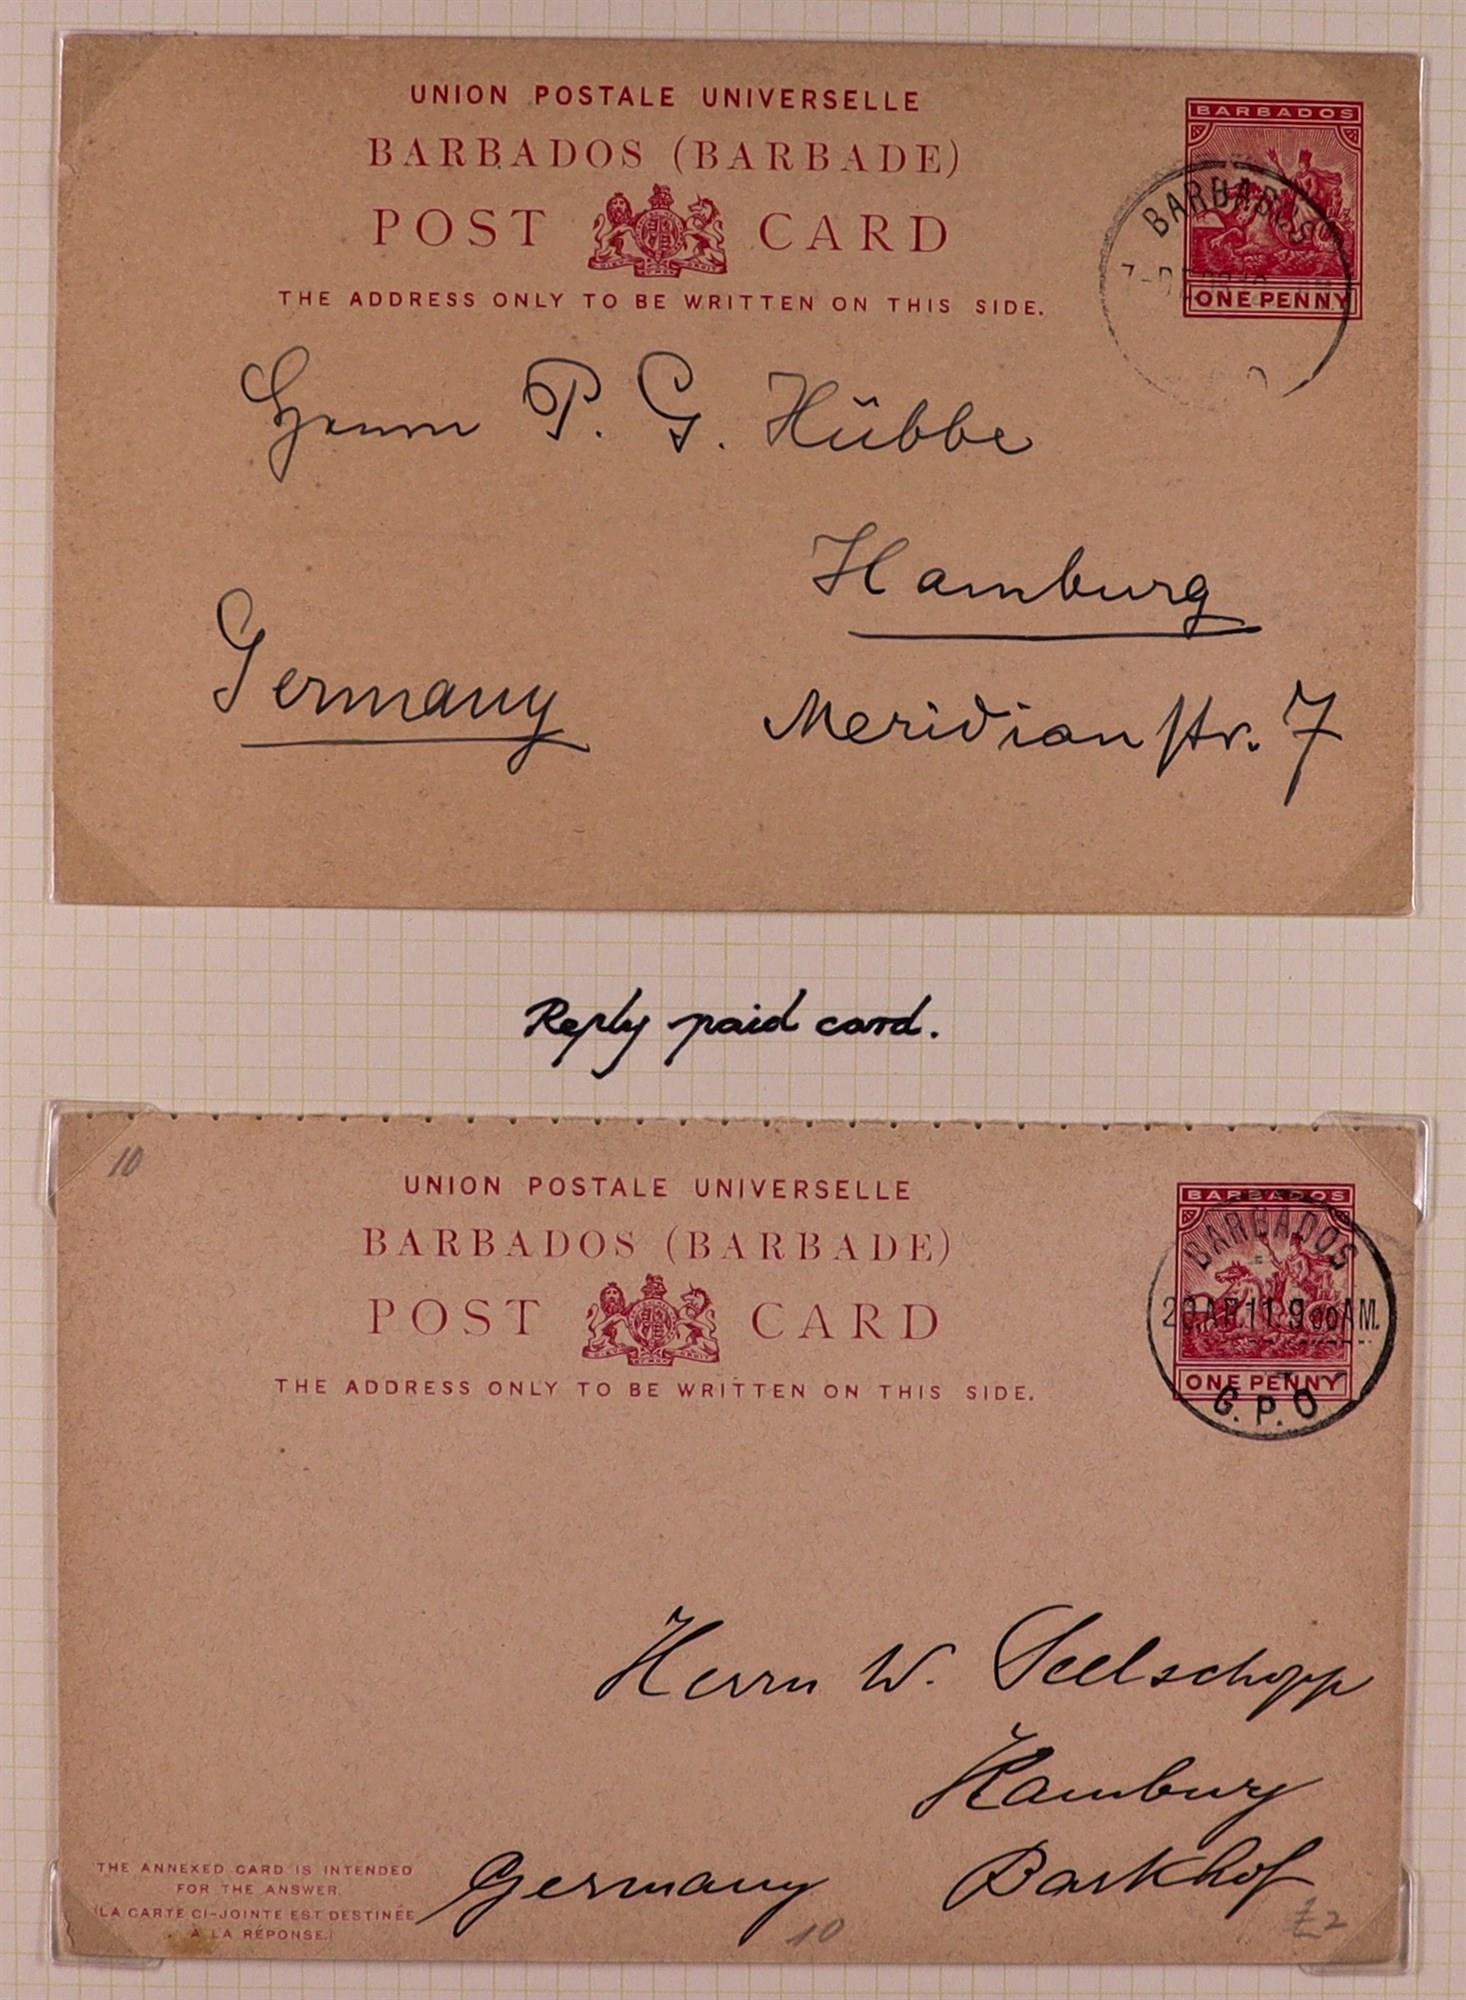 UNION POSTALE UNIVERSELLE
BARBADOS (BARBADE)
POST CARD
THE ADDRESS ONLY TO BE WRITTEN ON THIS SIDE.
BARBADOS
ONE PENNY
BARBADOS
Herrn P. G. Hübbe
Hamburg
Germany
Meridianstr. 7
Reply paid card.
10
UNION POSTALE UNIVERSELLE
BARBADOS (BARBADE)
POST CARD
THE ADDRESS ONLY TO BE WRITTEN ON THIS SIDE.
BARBADOS
ONE PENNY
BARBADOS
AP.11.9 00AM.
G.P.O
Herrn W. Seelschopp
Hamburg
Germany
Barkhof
THE ANNEXED CARD IS INTENDED
FOR THE ANSWER.
(LA CARTE CI-JOINTE EST DESTINÉE
À LA RÉPONSE.)
10
£2